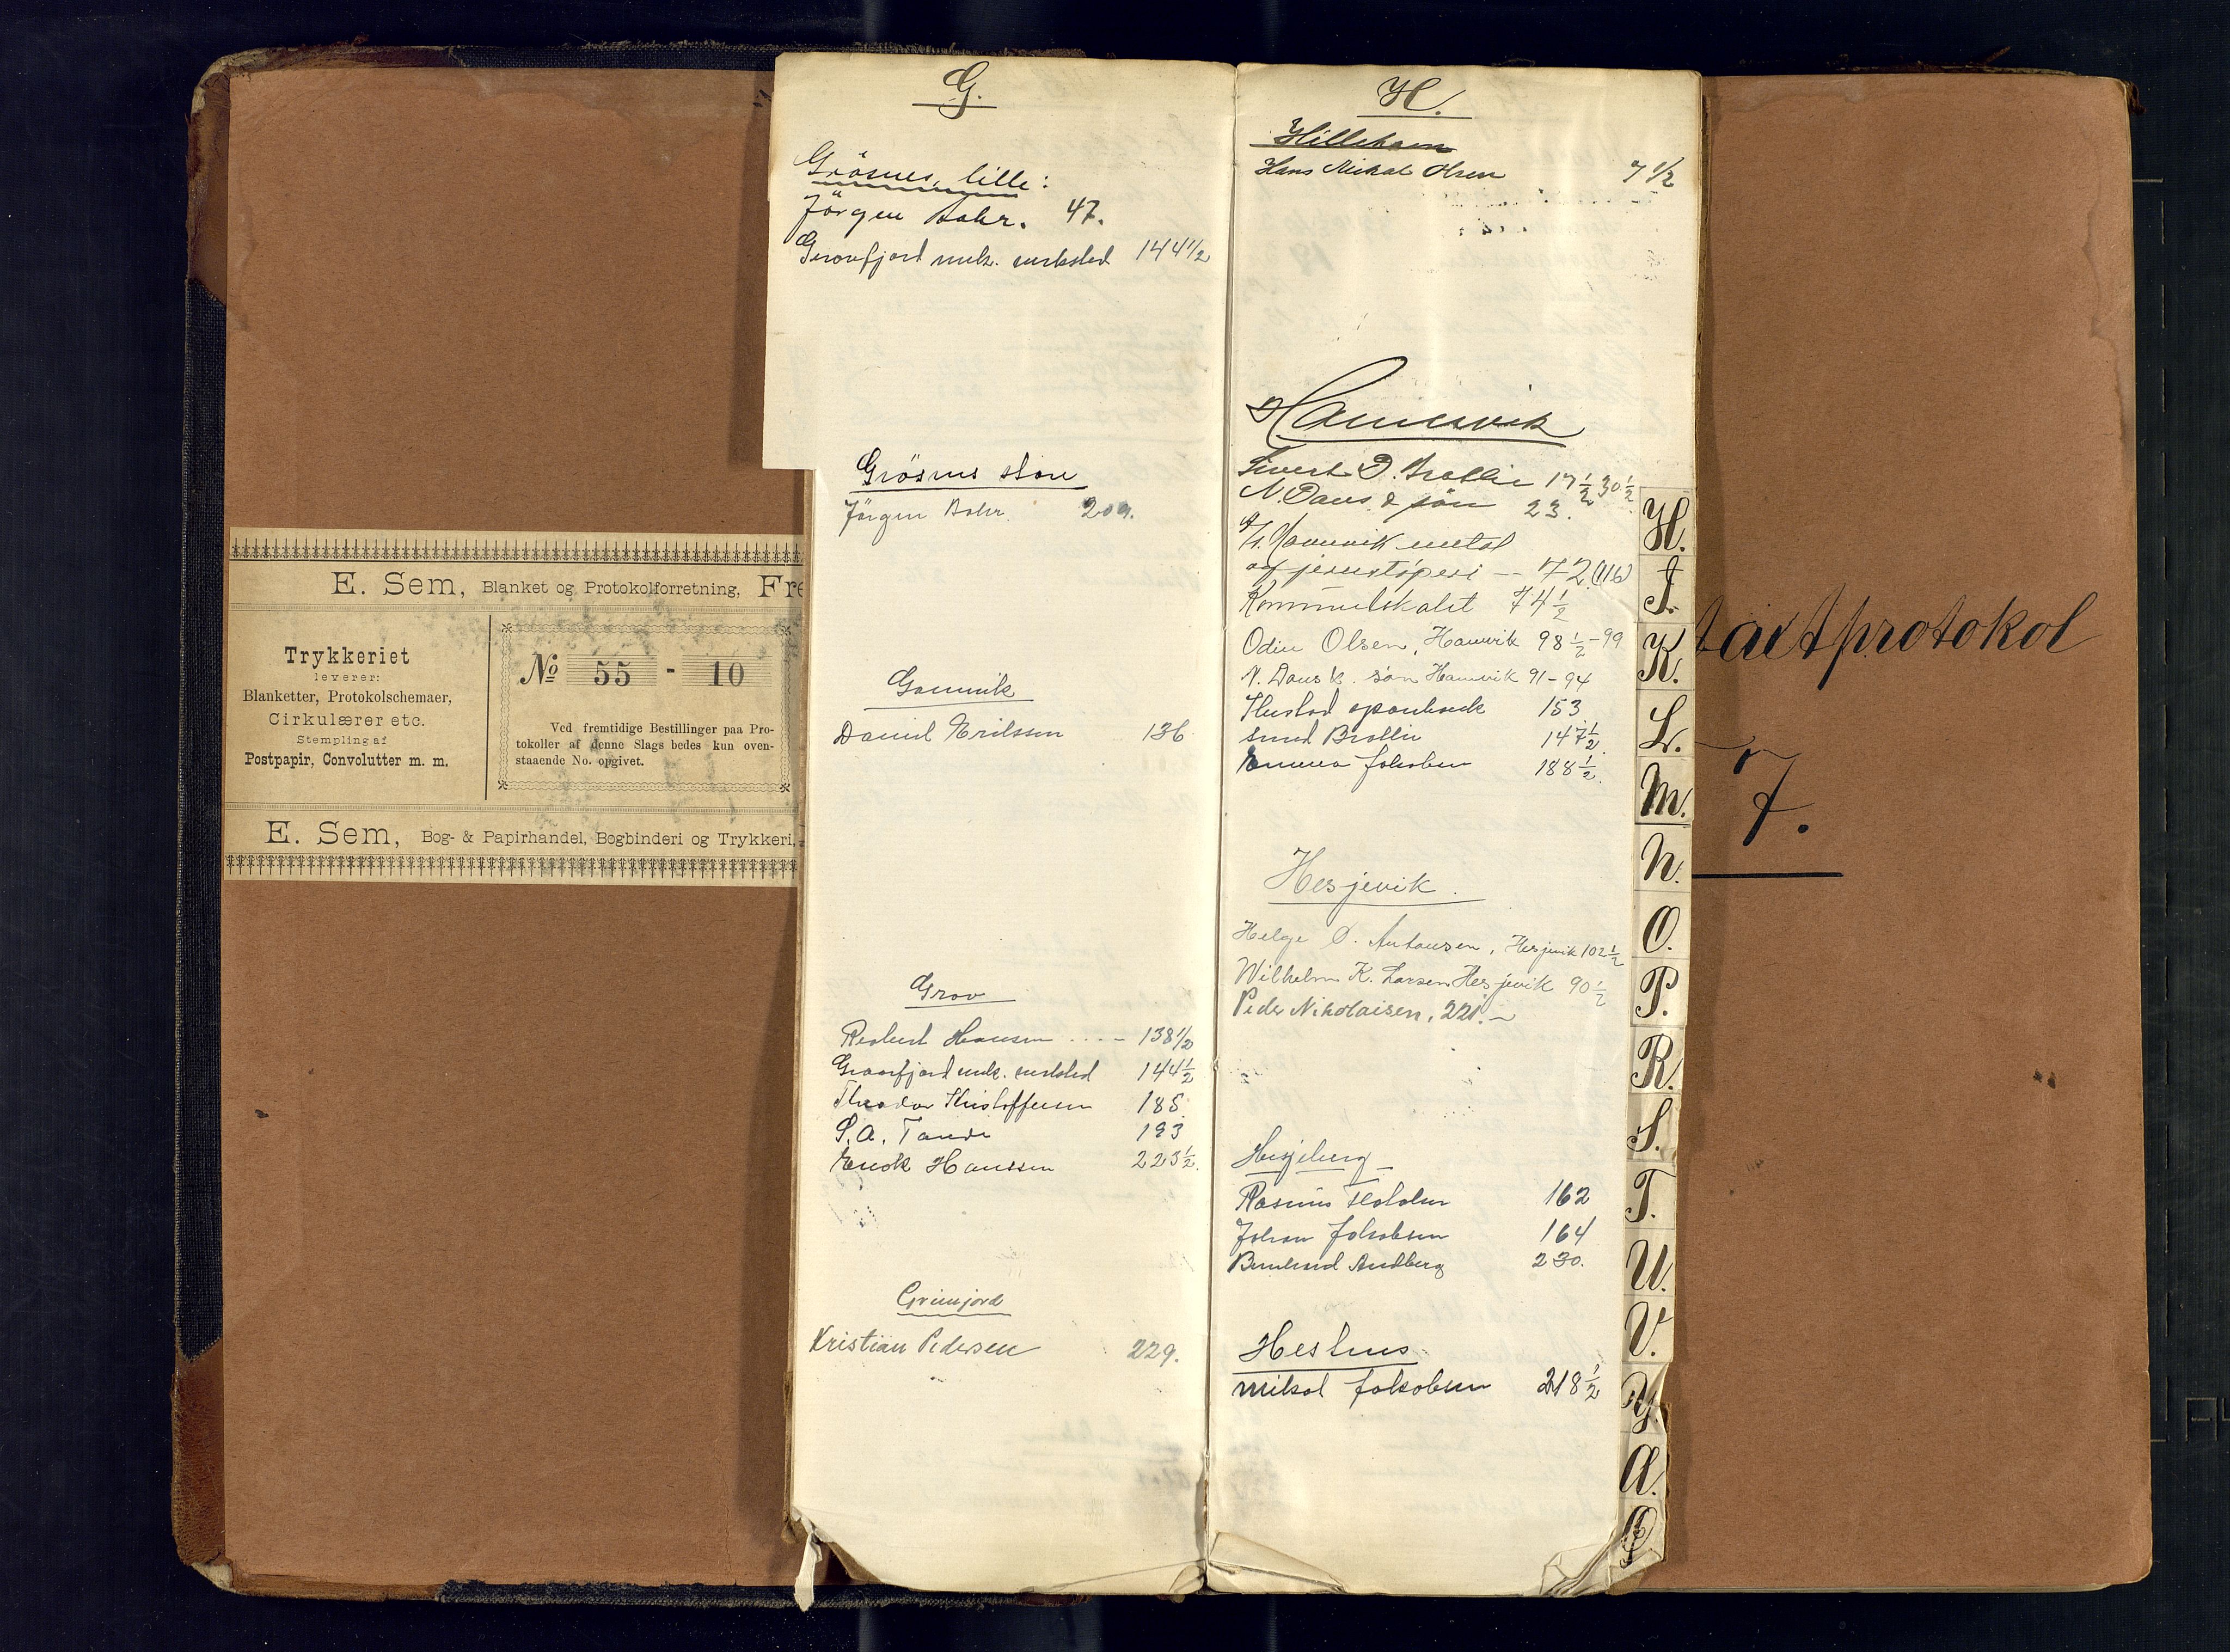 E. Sem, Blanket og Protokolforretning, Fre
Trykkeriet
leverer:
Blanketter, Protokolschemaer,
Cirkulærer etc.
Stempling af
Postpapir, Convolutter m. m.
№ 55 - 10
Ved fremtidige Bestillinger paa Pro-
tokoller af denne Slags bedes kun oven-
staaende No. opgivet.
E. Sem, Bog- & Papirhandel, Bogbinderi og Trykkeri,
G.
Grösnes, lille:
Jörgen Bohr. 47.
Gravfjord mek. verksted 144 1/2
Grösnes store
Jörgen Bohr. 209.
Gamvik
Daniel Erikssen 136
Grov
Robert Hansen .... 138 1/2
Gravfjord mek. verksted 144 1/2
Theodor Kristoffersen 185
S. A. Tande 193
Enok Hanssen 223 1/2
Grimjord
Kristian Pedersen 229.
H.
Hillehavn
Hans Mikal Olsen 7 1/2
Hamnvik
Sivert D. Brotlie 17 1/2 30 1/2
N. Dans. & sön 23.
A/S. Hamnvik metal
og jernstöperi — 72 (116)
Kommunelokalet 74 1/2
Odin Olsen, Hamvik 98 1/2 - 99
N. Dans k. sön Hamvik 91 - 94
Ibestad sparebank 153
Brotlie 147 1/2
Emma Jakobsen 188 1/2
Hesjevik.
Helge D. Antonsen, Hesjevik 102 1/2
Wilhelm K. Larsen Hesjevik 90 1/2
Peder Nikolaisen, 221. —
Hesjeberg
Rasmus 162
Johan Jakobsen 164
Berntund Andberg 230.
Hesnes
Mikal Jakobsen 218 1/2
H.
J.
K.
L.
M.
N.
O.
P.
R.
S.
T.
U.
V.
Y.
Æ.
Ø
taxtprotokol
7.